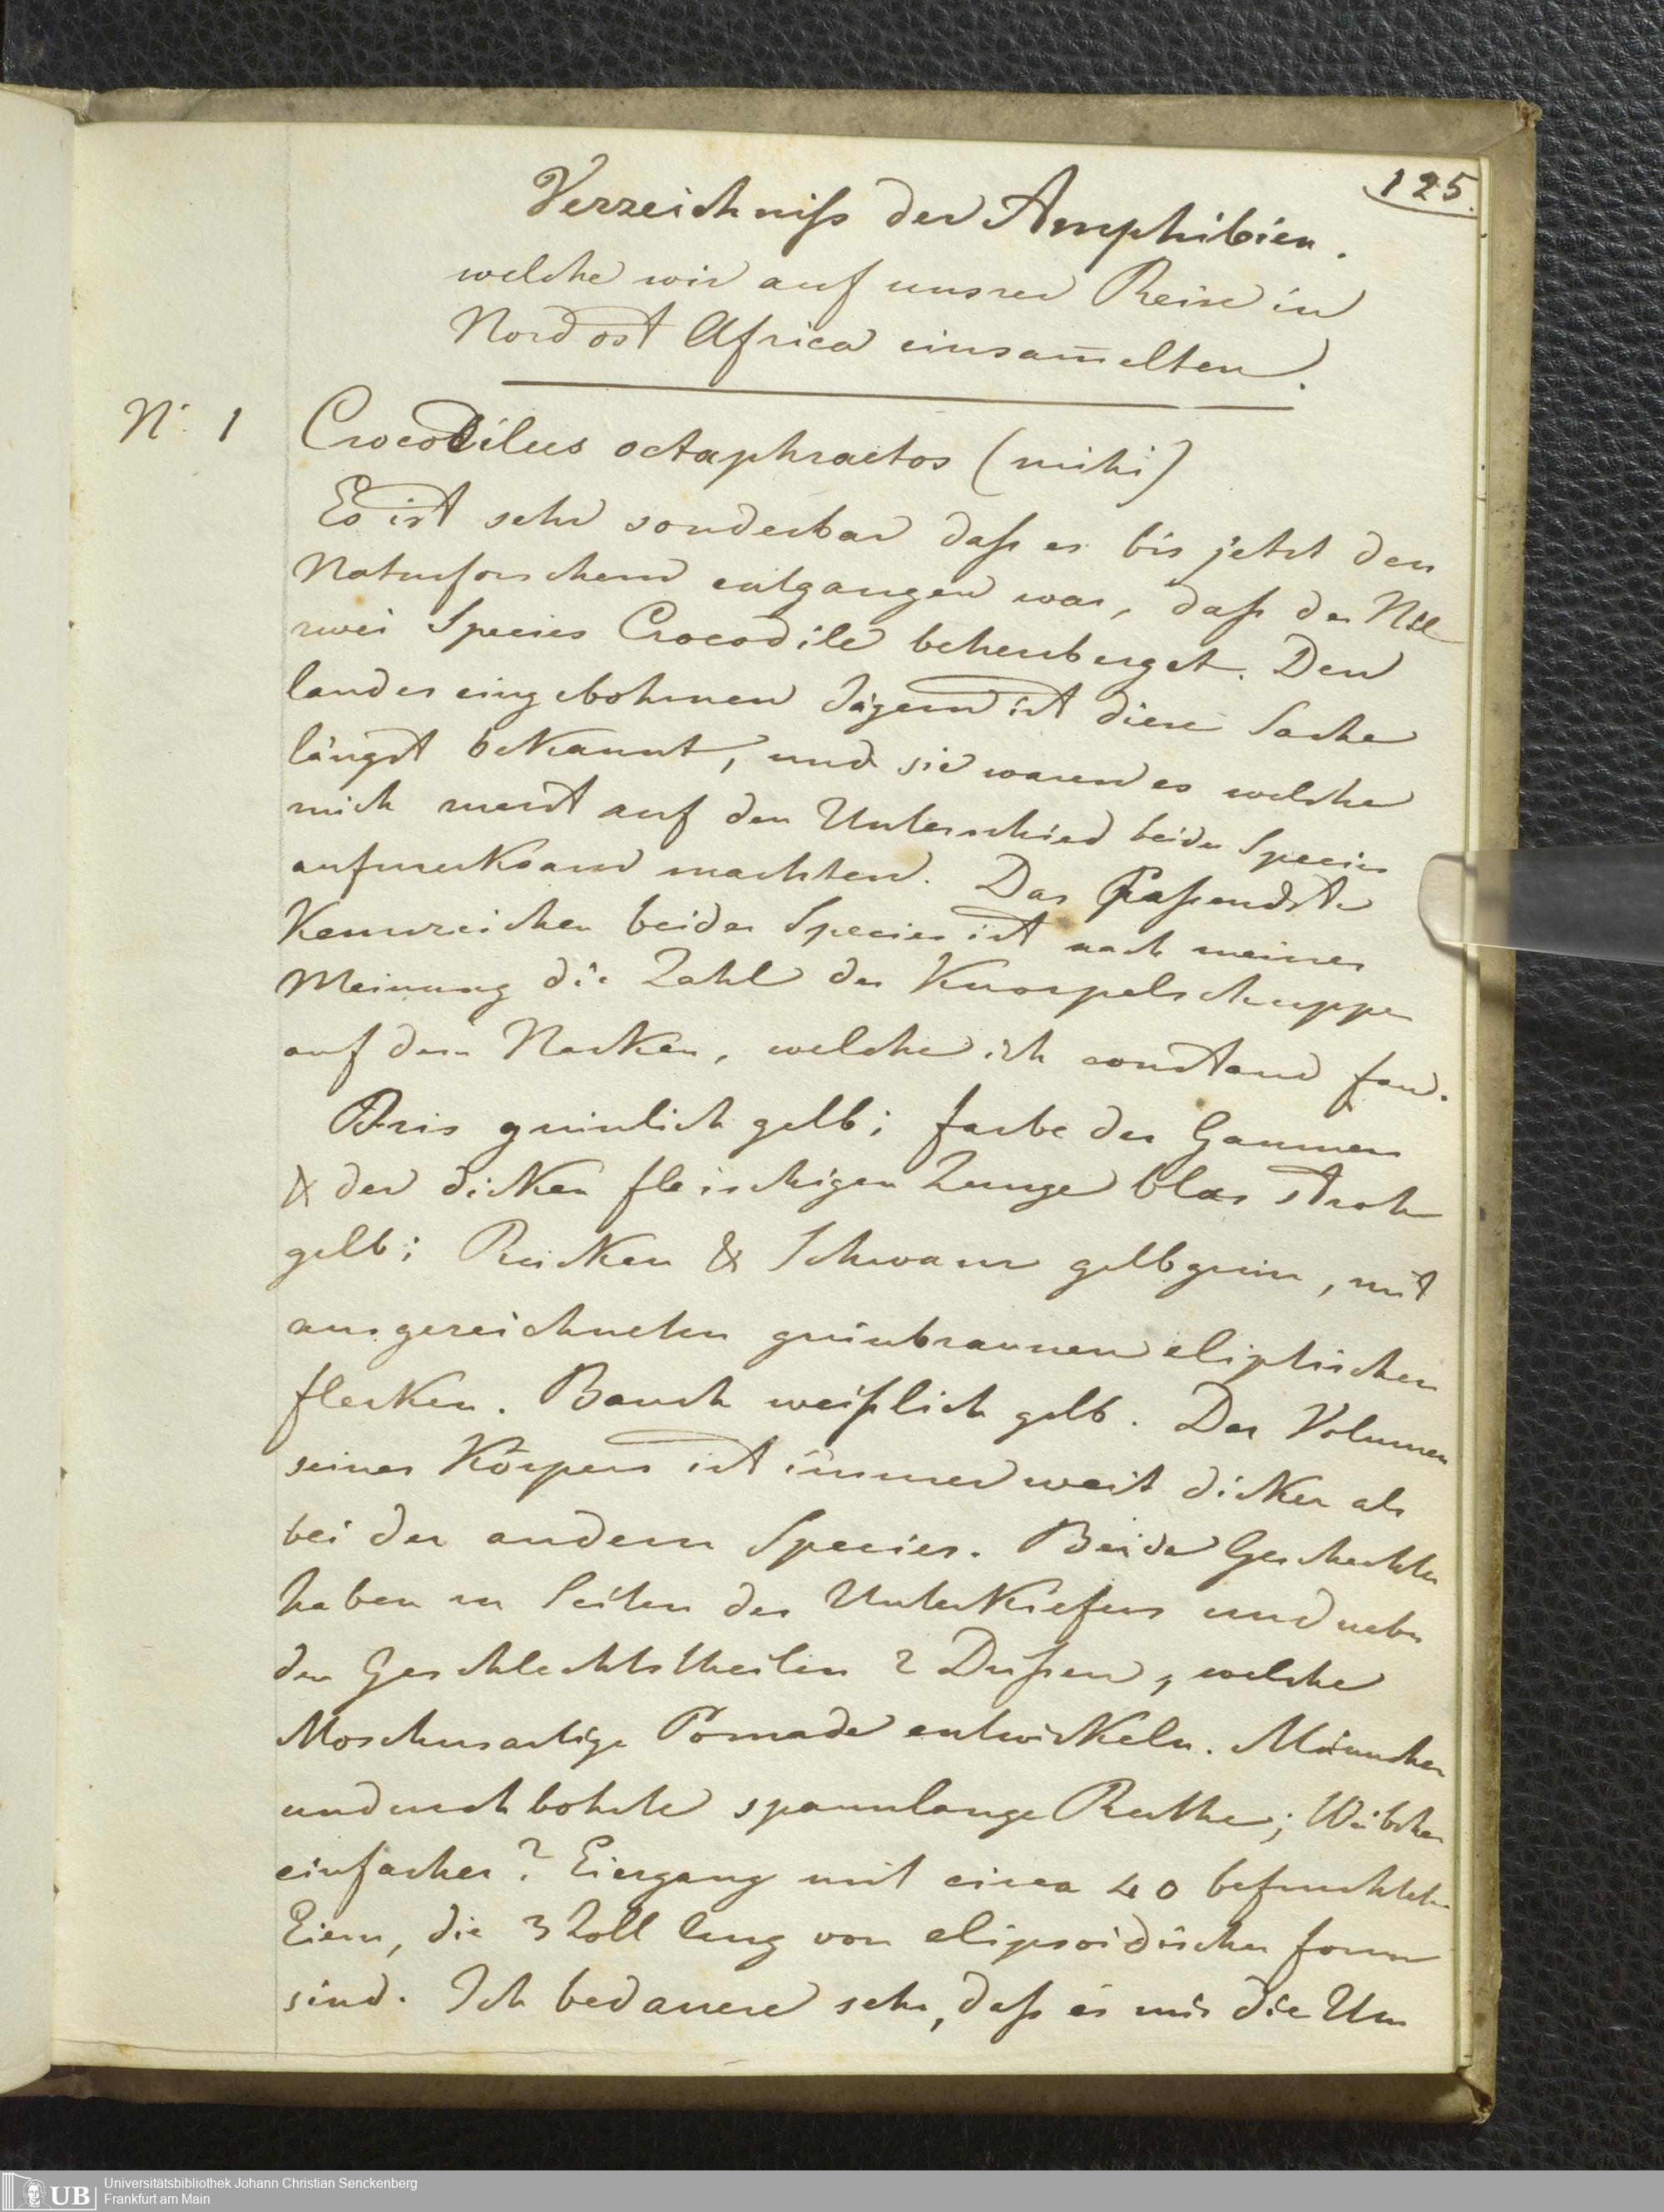 125.
Verzeichniss der Amphibien.
welche wir auf unsrer Reise in
Nord ost Africa einsam̅elten.
N. 1 Crocodilus octaphractos (mihi)
Es ist sehr sonderbar dass es bis jetzt den
Naturforschern entgangen war, dass der Nil
zwei Species Crocodile beherberget. Den
landeseingebohrnen Jägern ist diese Sache
längst bekannt, und sie waren es welche
mich zuerst auf den Unterschied beider Species
aufmerksam machten. Das Passendste
Kennzeichen beider Species ist nach meiner
Meinung die Zahl der Knorpelschuppen
auf dem Nacken, welche ich constant fand.
Iris grünlich gelb; farbe des Gaumens
& der dicken fleischigen Zunge blas stroh
gelb; Rücken & Schwanz gelbgrün, mit
ausgezeichneten grünbraunen eliptischen
flecken. Bauch weisslich gelb. Das Volumen
seines Körpers ist immer weit dicker als
bei der andern Species. Beide Geschlechter
haben zu Seiten des Unterkiefers und neben
den Geschlechtstheilen 2 Drüsen, welche
Moschusartige Pomade entwickeln. Männchen
undurchbohrte spannlange Ruthe; Weibchen
einfacher? Eiergang mit circa 40 befruchteten
Eiern, die 3 Zoll lang von elipsoidischer form
sind. Ich bedauere sehr, dass es mir die Um
Universitätsbibliothek Johann Christian Senckenberg
UB Frankfurt am Main